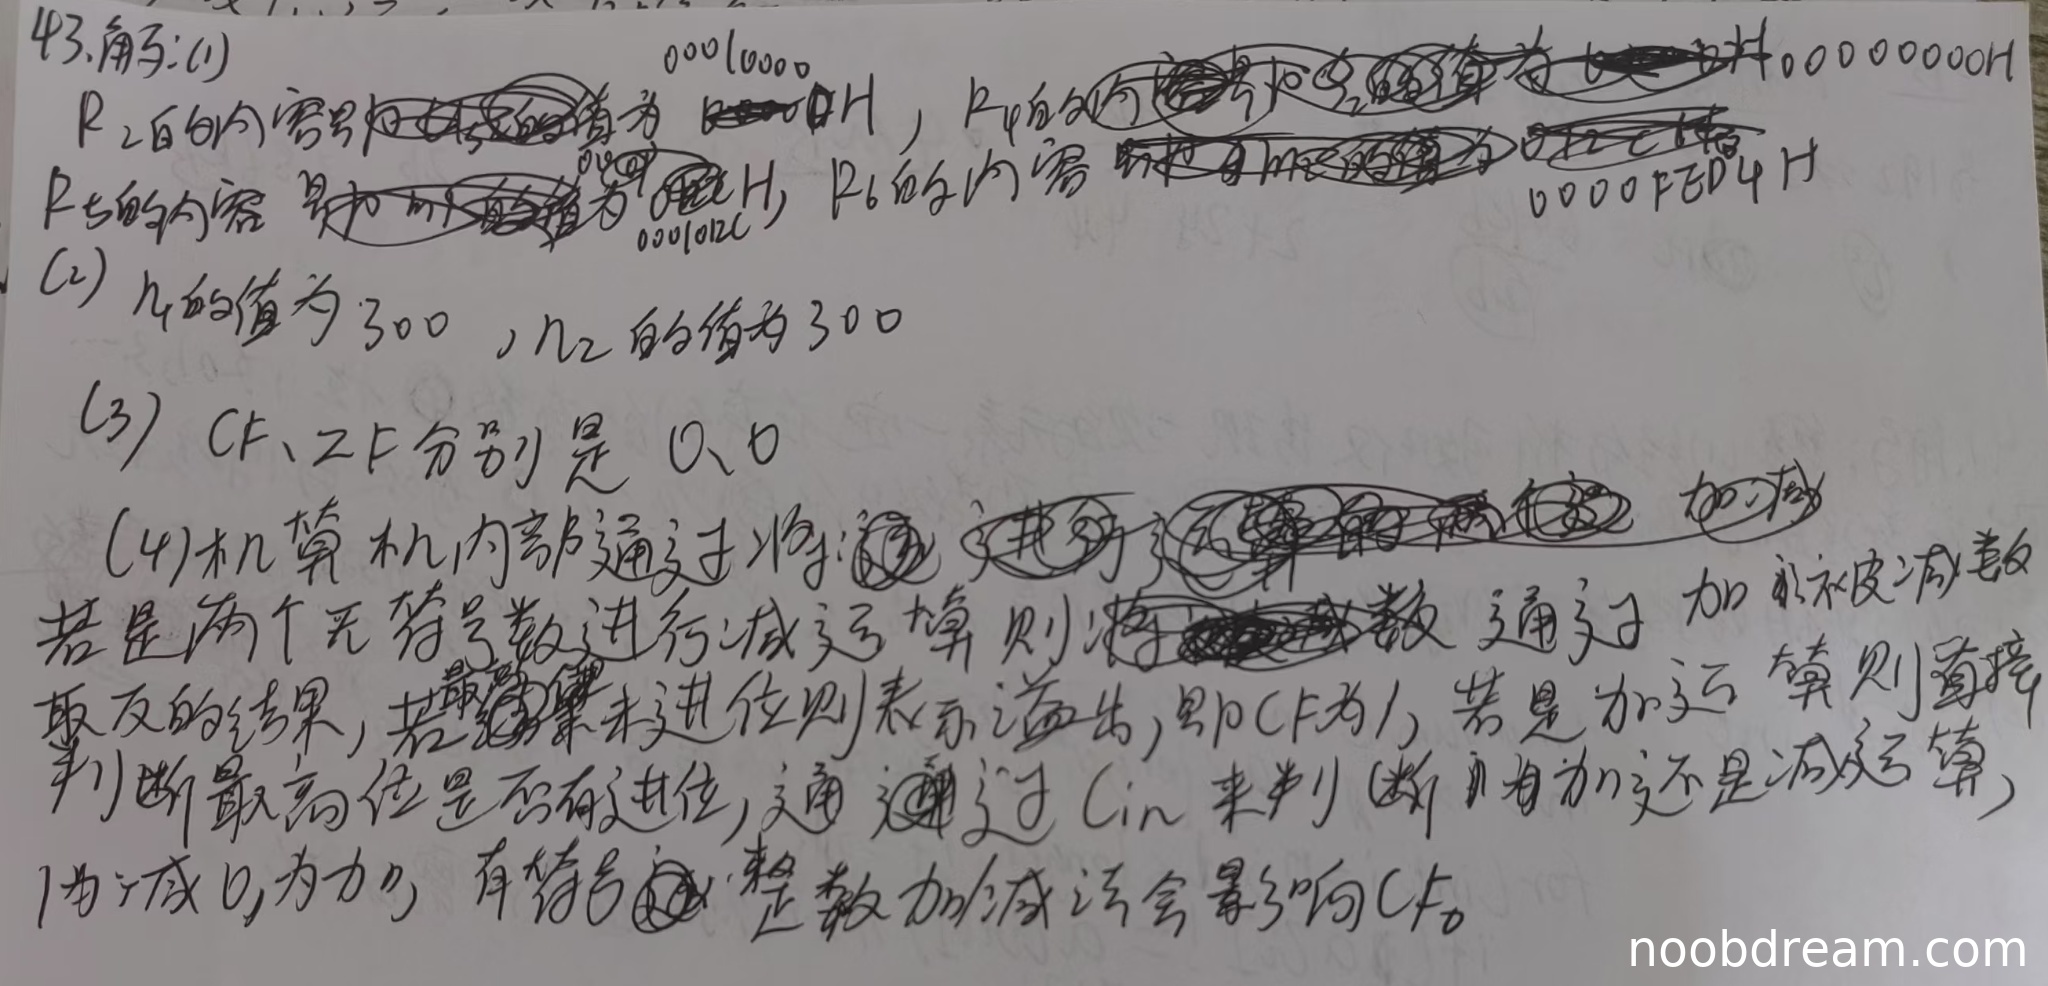 43.解:(1)
R2的内容 为 00010000H, R4的 00000000H
R5的内容 0001012C H, R6的内容 0000FED4H
(2) n1的值为300, n2的值为300
(3) CF、ZF分别是 0、0
(4)机算机内部通过将
若是两个无符号数进行减运算则 通过加 被减数
取反的结果,若最高 未进位则表示溢出,即CF为1,若是加运算则直接
判断最高位是否有进位,通 过Cin来判断 为加还是减运算,
1为减0,为加, 有符号 整数加/减法会影响CF。
noobdream.com